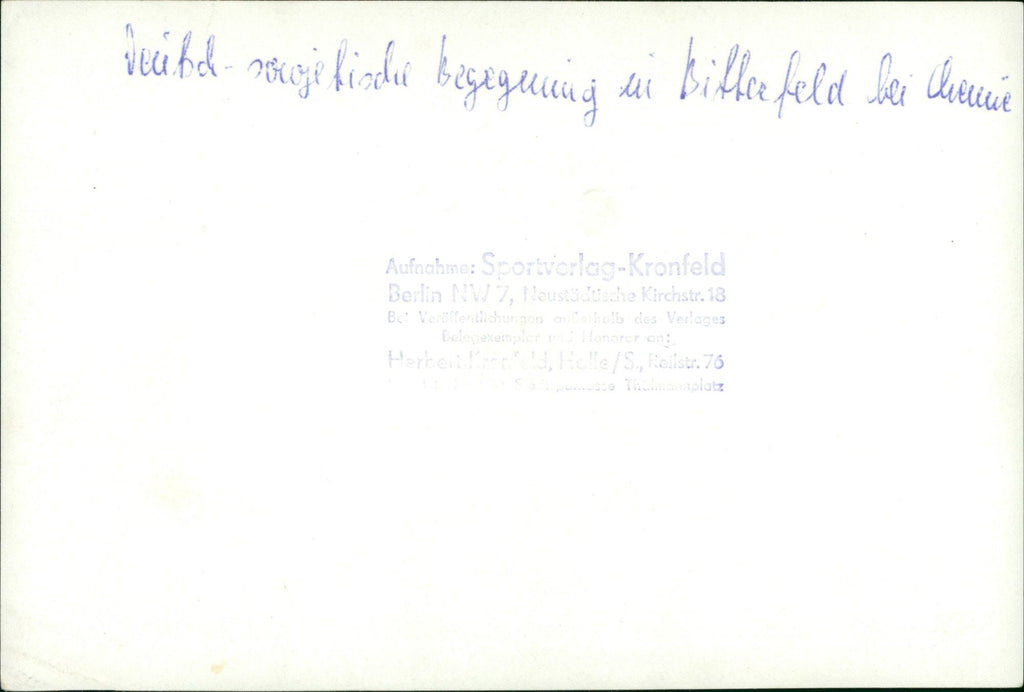 Deutsch-sowjetische Begegnung in Bitterfeld bei Chemie
Aufnahme: Sportverlag-Kronfeld
Berlin NW 7, Neustädtische Kirchstr. 18
Bei Veröffentlichungen außerhalb des Verlages
Belegexemplar und Honorar an:
Herbert Kronfeld, Halle/S., Reilstr. 76
Stadtsparkasse Thälmannplatz